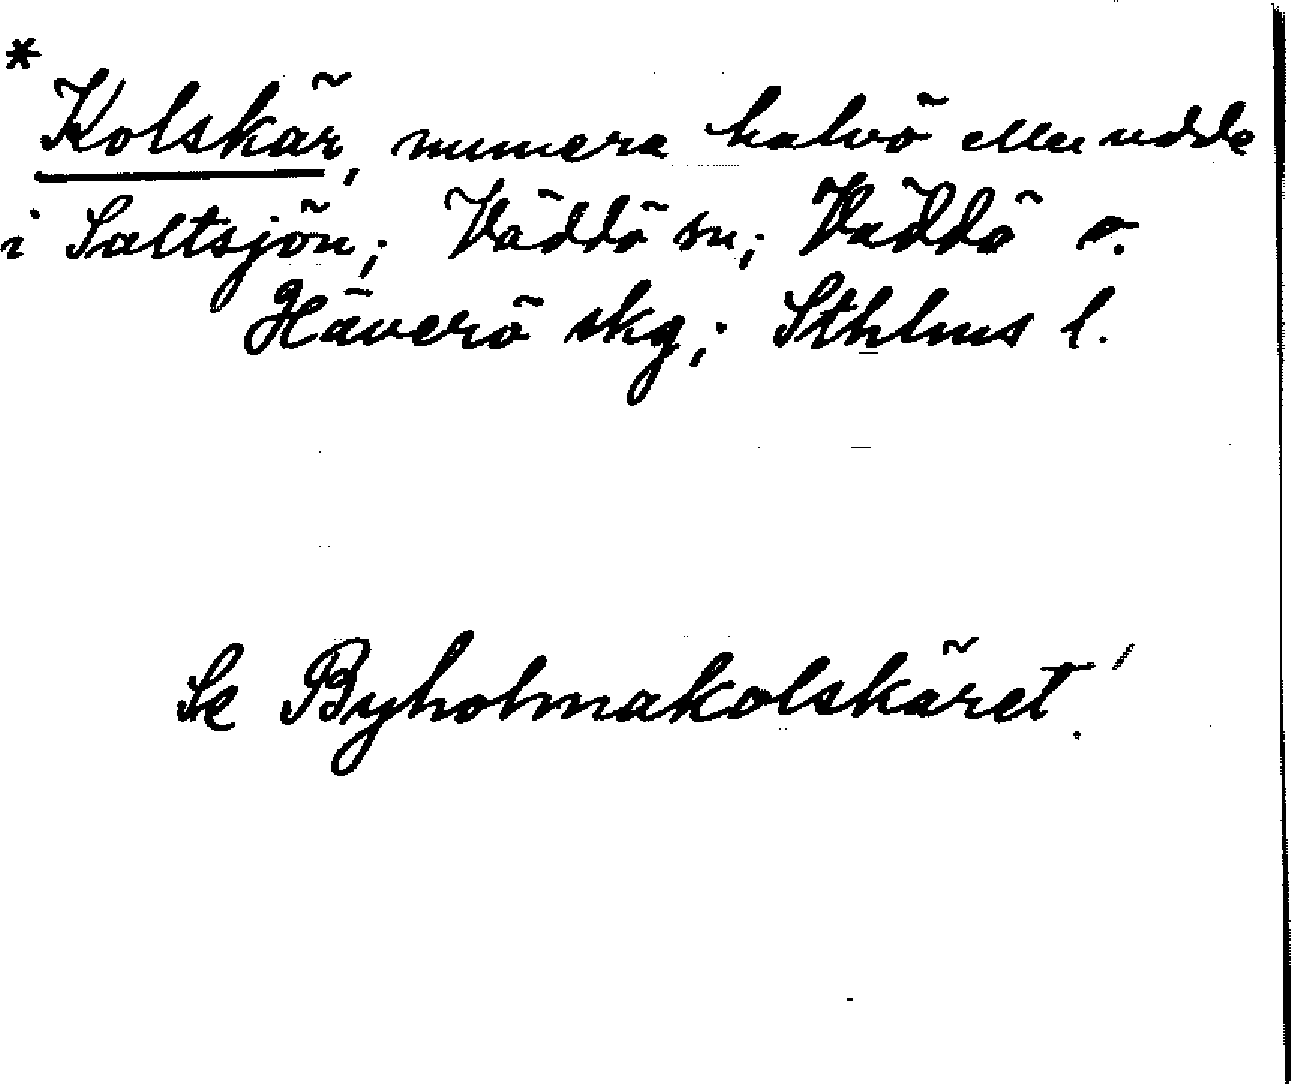 * Kolskär, numera halvö eller udde
i Saltsjön; Väddö sn; Väddö o.
Häverö skg; Sthlms l.
Se Byholmakolskäret!